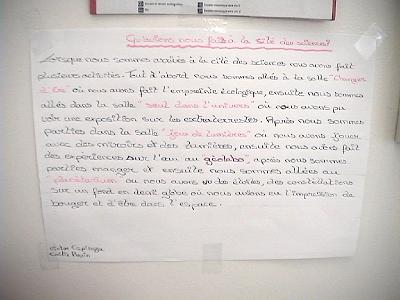 Qu'avions nous fait à la cité des sciences?
Lorsque nous sommes arrivés à la cité des sciences nous avons fait
plusieurs activités. Tout d'abord nous sommes allés à la salle "changer
d'ère" où nous avons fait l'empreinte écologique, ensuite nous sommes
allés dans la salle "seul dans l'univers" où nous avons pu
voir une exposition sur les extraterrestres. Après nous sommes
parties dans la salle "jeux de lumières" où nous avons jouer
avec des miroirs et des lumières, ensuite nous avons fait
des experiences sur l'eau au géolabo, après nous sommes
parties manger et ensuite nous sommes allées au
planétarium où nous avons vu des étoiles, des constéllations
sur un fond en demi globe où nous avions eu l'impression de
bouger et d'être dans l'espace.